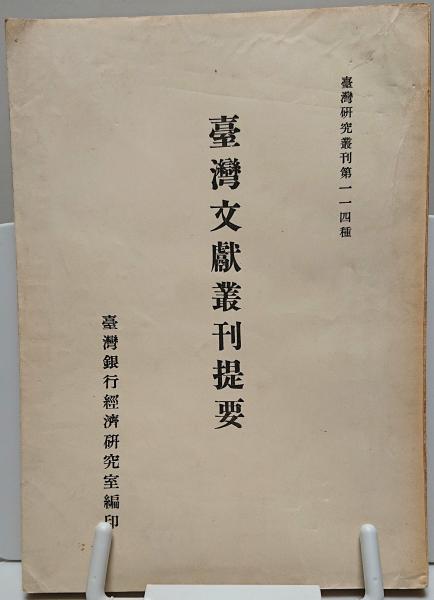 臺灣研究叢刊第一一四種
臺灣文獻叢刊提要
臺灣銀行經濟研究室編印